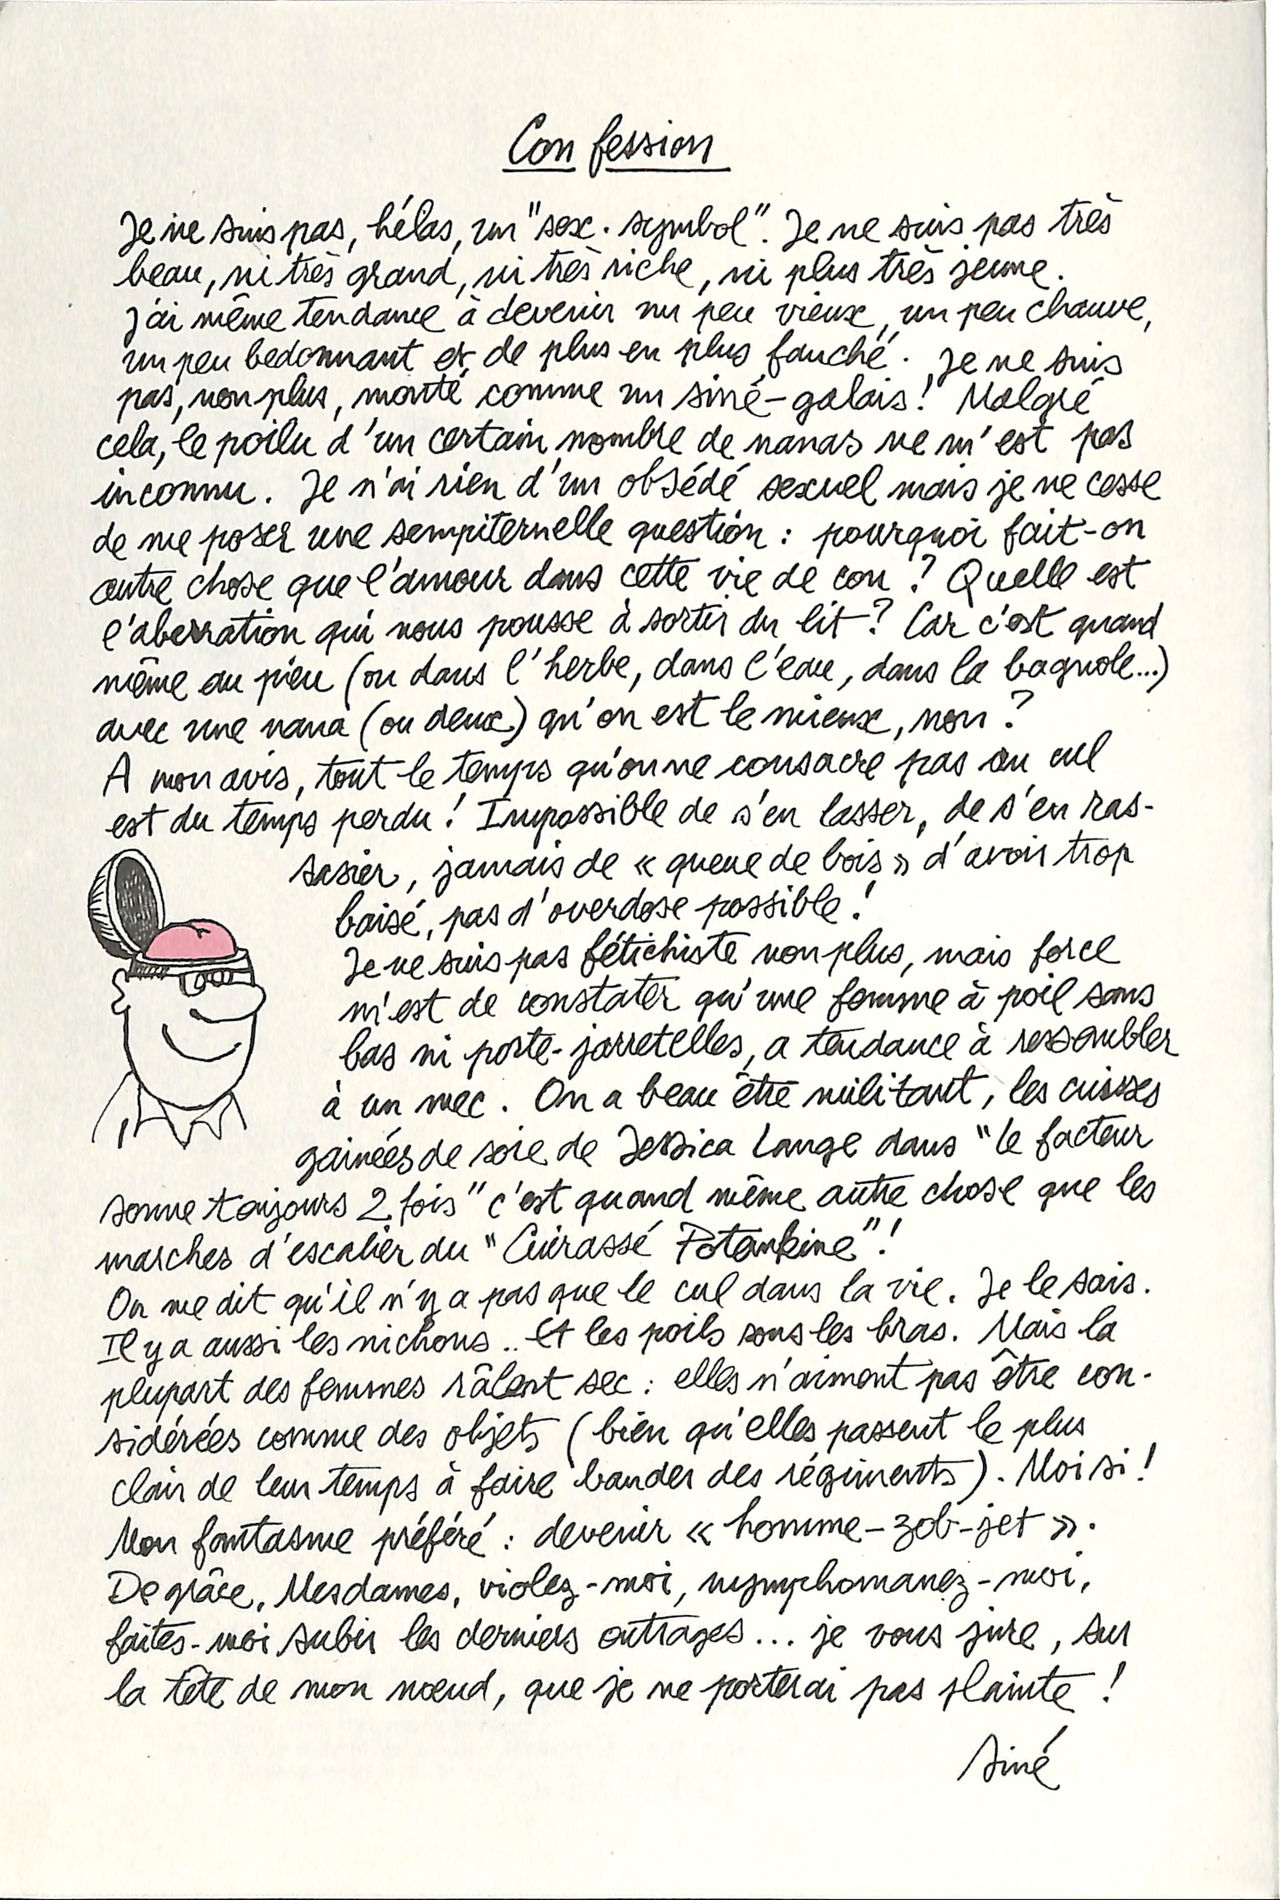 Con fession
Je ne suis pas, hélas, un "sex. symbol". Je ne suis pas très
beau, ni très grand, ni très riche, ni plus très jeune.
J'ai même tendance à devenir un peu vieux, un peu chauve,
un peu bedonnant et de plus en plus fauché. Je ne suis
pas, non plus, monté comme un siné-galais! Malgré
cela, le poilu d'un certain nombre de nanas ne m'est pas
inconnu. Je n'ai rien d'un obsédé sexuel mais je ne cesse
de me poser une sempiternelle question : pourquoi fait-on
autre chose que l'amour dans cette vie de con ? Quelle est
l'aberration qui nous pousse à sortir du lit ? Car c'est quand
même au pieu (ou dans l'herbe, dans l'eau, dans la bagnole...)
avec une nana (ou deux) qu'on est le mieux, non ?
A mon avis, tout le temps qu'on ne consacre pas au cul
est du temps perdu ! Impossible de s'en lasser, de s'en ras-
sasier, jamais de « queue de bois » d'avoir trop
baisé, pas d'overdose possible !
Je ne suis pas fétichiste non plus, mais force
m'est de constater qu'une femme à poil sans
bas ni porte-jarretelles, a tendance à ressembler
à un mec. On a beau être militant, les cuisses
gainées de soie de Jessica Lange dans "le facteur
sonne toujours 2 fois" c'est quand même autre chose que les
marches d'escalier du "Cuirassé Potemkine" !
On me dit qu'il n'y a pas que le cul dans la vie. Je le sais.
Il y a aussi les nichons .. Et les poils sous les bras. Mais la
plupart des femmes râlent sec : elles n'aiment pas être con-
sidérées comme des objets (bien qu'elles passent le plus
clair de leur temps à faire bander des régiments). Moi si !
Mon fantasme préféré : devenir « homme-zob-jet ».
De grâce, Mesdames, violez-moi, nymphomanez-moi,
faites-moi subir les derniers outrages... je vous jure, sur
la tête de mon nœud, que je ne porterai pas plainte !
Siné